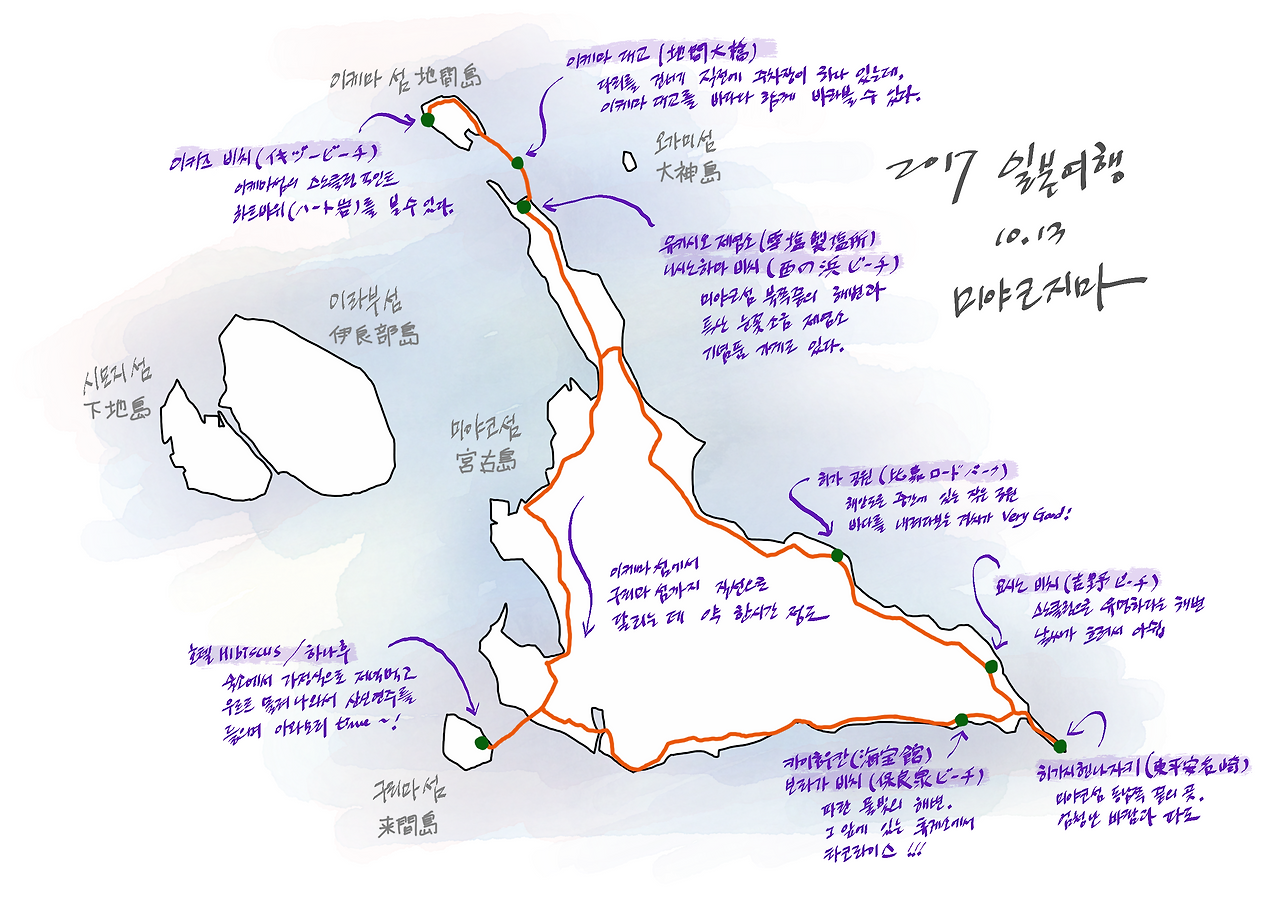 2017 일본여행
10.13
미야코지마
이케마 섬 地間島
이케마 대교 (地間大橋)
다리를 건너기 직전에 주차장이 하나 있는데,
이케마 대교를 바다와 함께 바라볼 수 있다.
오가미섬
大神島
이키즈 비치 (イキヅービーチ)
이케마섬의 스노클링 포인트
하트바위 (ハート岩)를 볼 수 있다.
유키시오 제염소 (雪塩製塩所)
니시노하마 비치 (西の浜ビーチ)
미야코섬 북쪽끝의 해변과
특산 눈꽃소금 제염소
기념품 가게도 있다.
이라부섬
伊良部島
시모지 섬
下地島
미야코섬
宮古島
히가 공원 (比嘉ロードパーク)
해안도로 중간에 있는 작은 공원
바다를 내려다보는 경치가 Very Good!
이케마 섬에서
쿠리마 섬까지 직선으로
달리는 데 약 한시간 정도
요시노 비치 (吉野ビーチ)
스노클링으로 유명하다는 해변
날씨가 흐려서 아쉽
호텔 Hibiscus / 하나후
숙소에서 가정식으로 저녁먹고
우르르 몰려나와서 산신연주를
들으며 아와모리 time ~!
쿠리마 섬
来間島
카이호우칸 (海宝館)
보라가 비치 (保良泉ビーチ)
파란 물빛의 해변.
그 앞에 있는 휴게소에서
타코라이스 !!!
히가시헨나자키 (東平安名崎)
미야코섬 동남쪽 끝의 곳.
엄청난 바람과 파도